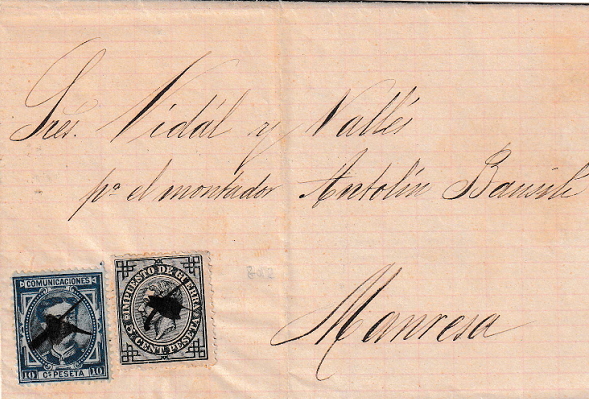 Sres. Vidál y Vallés
pª el montador Antolín
Manresa
COMUNICACIONES
10 Cs PESETA 10
IMPUESTO DE GUERRA
5 CENT. PESETA